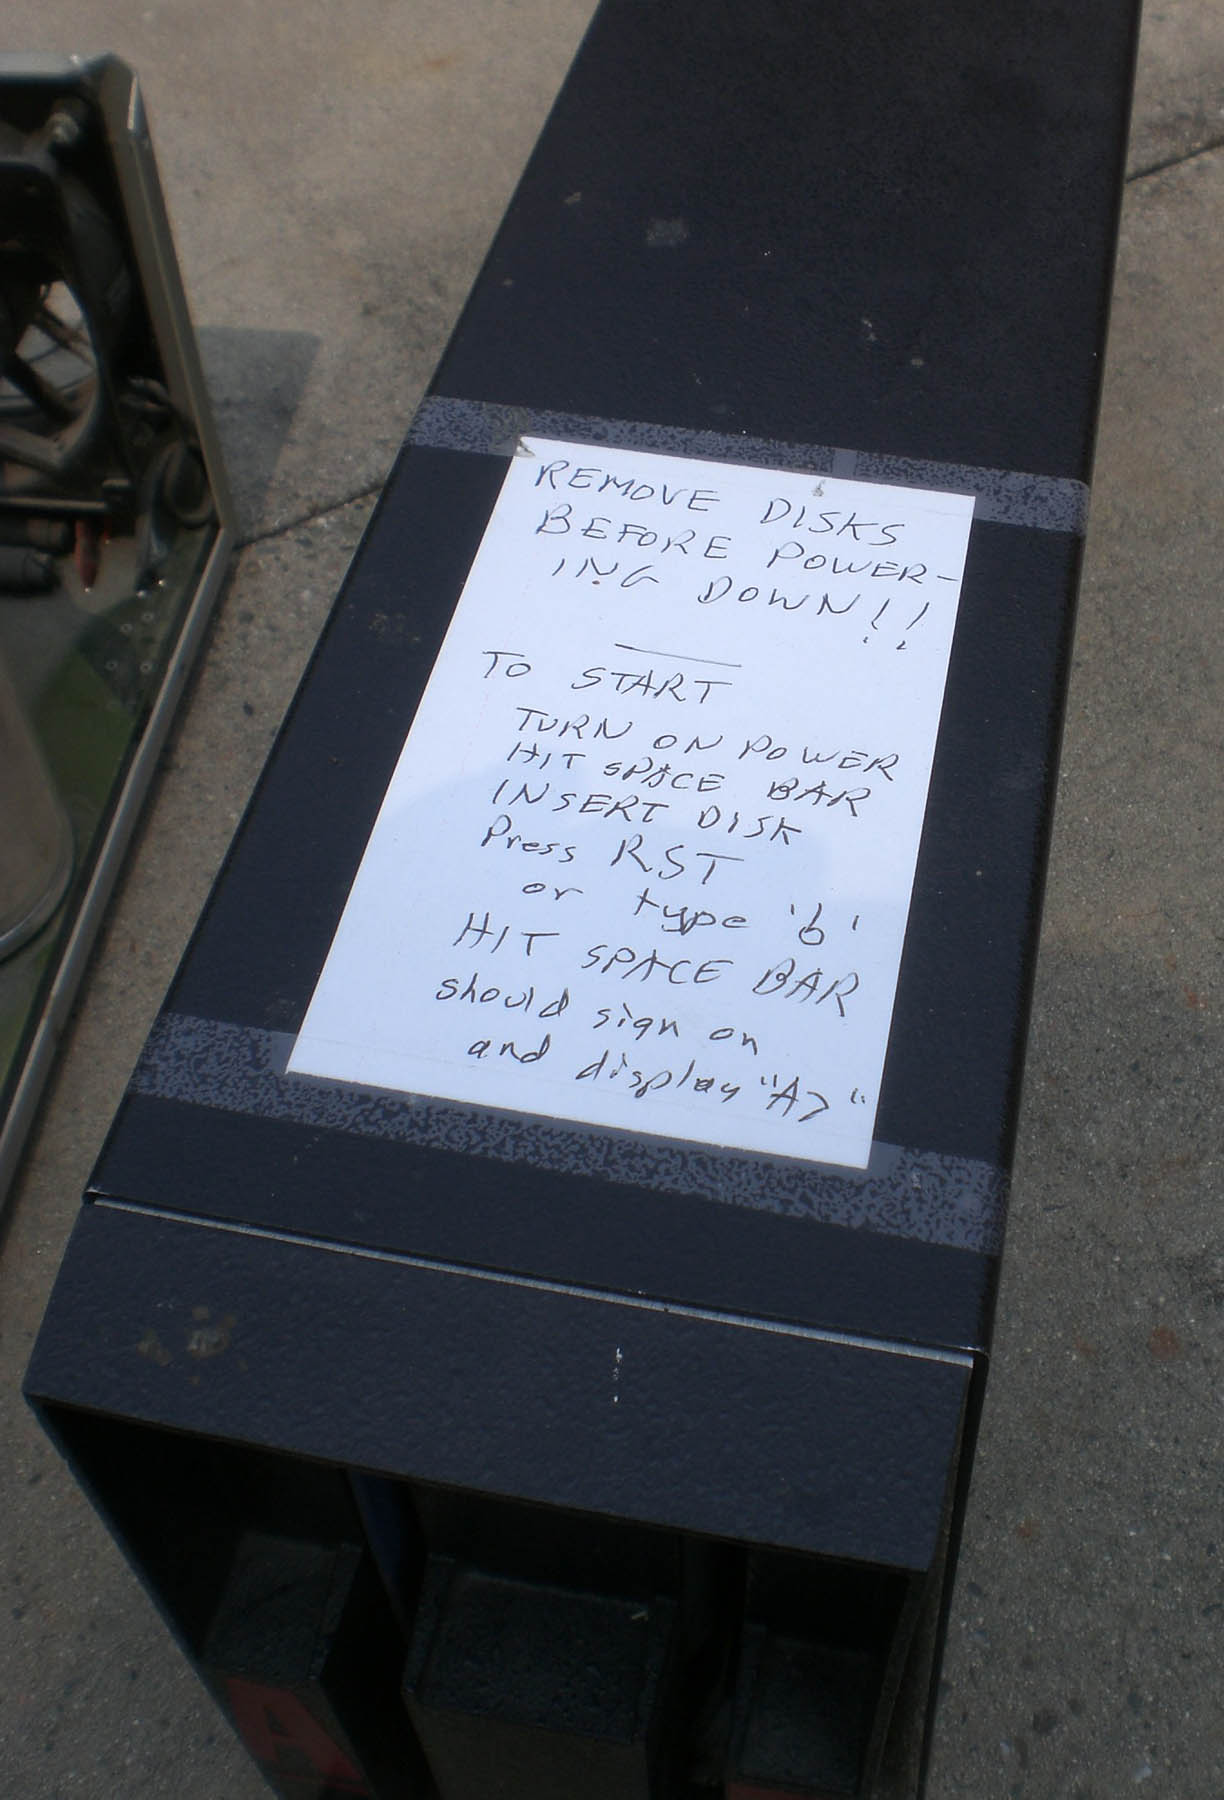 REMOVE DISKS
BEFORE POWER-
ING DOWN!!
TO START
TURN ON POWER
HIT SPACE BAR
INSERT DISK
Press RST
or type 'b'
HIT SPACE BAR
should sign on
and display "A>"
A